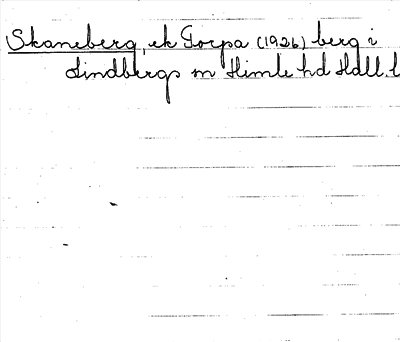 Skaneberg, ek Torpa (1926) berg i
Lindbergs sn Himle hd Hall. l